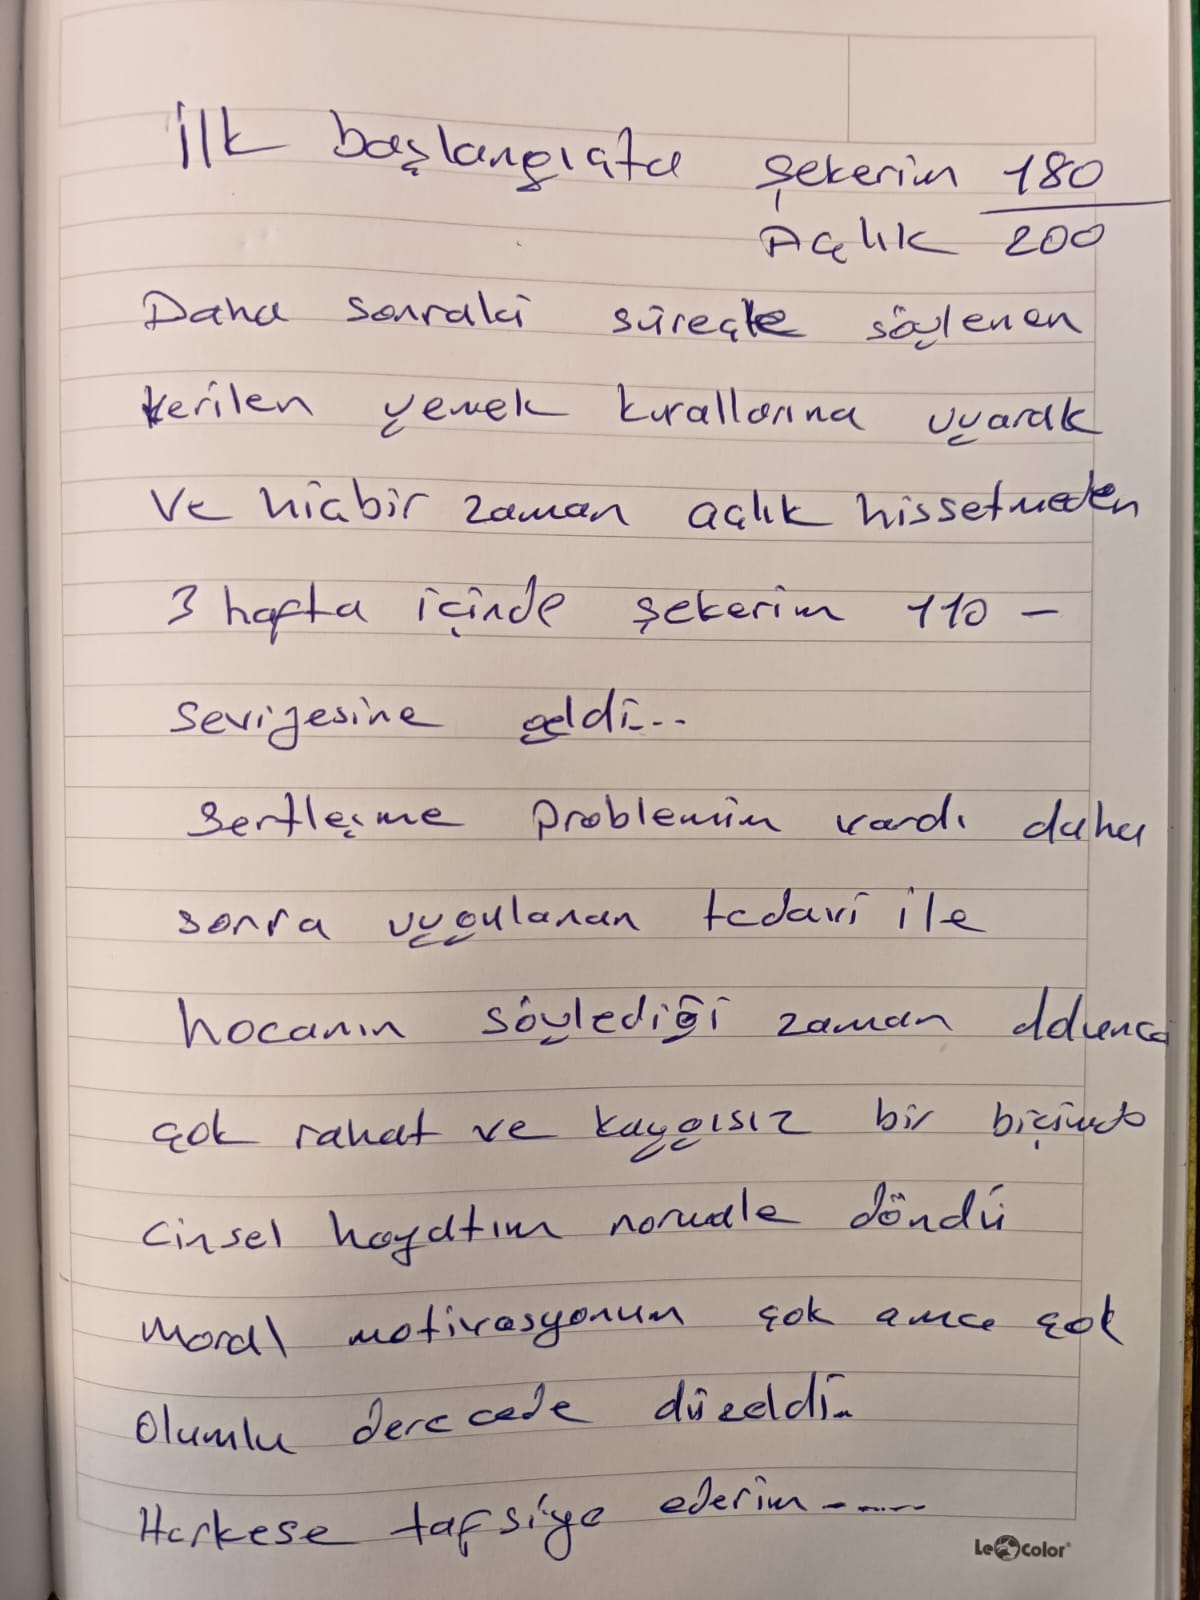 İlk başlangıçta şekerim 180
Açlık 200
Daha sonraki süreçte söylenen
verilen yemek kurallarına uyarak
ve hiçbir zaman açlık hissetmeden
3 hafta içinde şekerim 110 -
seviyesine geldi...
Sertleşme problemim vardı daha
sonra uygulanan tedavi ile
hocanın söylediği zaman
çok rahat ve kaygısız bir biçimde
cinsel hayatım normale döndü
Moral motivasyonum çok ama çok
Olumlu derecede düzeldi..
Herkese tafsiye ederim........
Le color